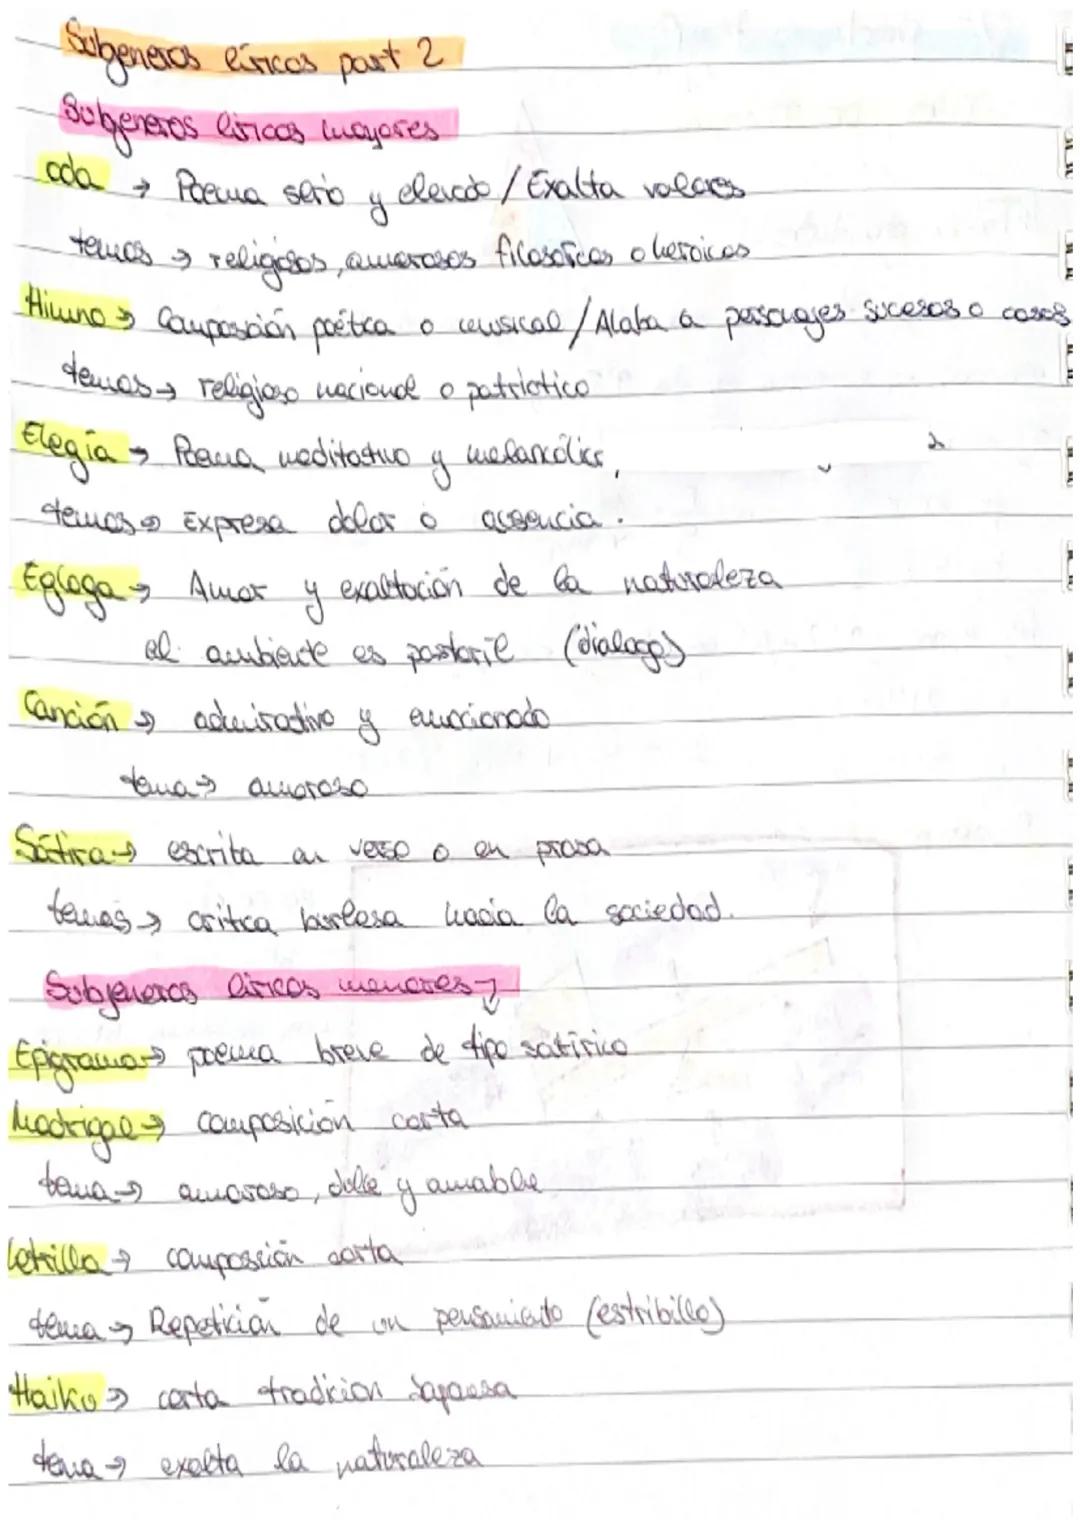 Subgeneros líricos part 2
Subgeneros líricos mayores
oda → Poema serio y elevado / Exalta valores
temas → religiosos, amorosos filosoficos o heroicos
Himno → Composición poética o musical / Alaba a personajes sucesos o cosas
temas → religioso nacional o patriotico
Elegía → Poema meditativo y melancólico,
temas → Expresa dolor o ausencia.
Egloga → Amor y exaltación de la naturaleza
el ambiente es pastoril (dialogo)
Canción → admirativo y emocionado
tema → amoroso
Sátira → escrita en verso o en prosa
temas → critica burlesa hacia la sociedad.
Subgeneros líricos menores ↓
Epigrama → poema breve de tipo satírico
Madrigal → composición corta
tema → amoroso, dulce y amable
Letrilla → composición corta
tema → Repetición de un pensamiento (estribillo)
Haiku → corta tradicion Japonesa
tema → exalta la naturaleza